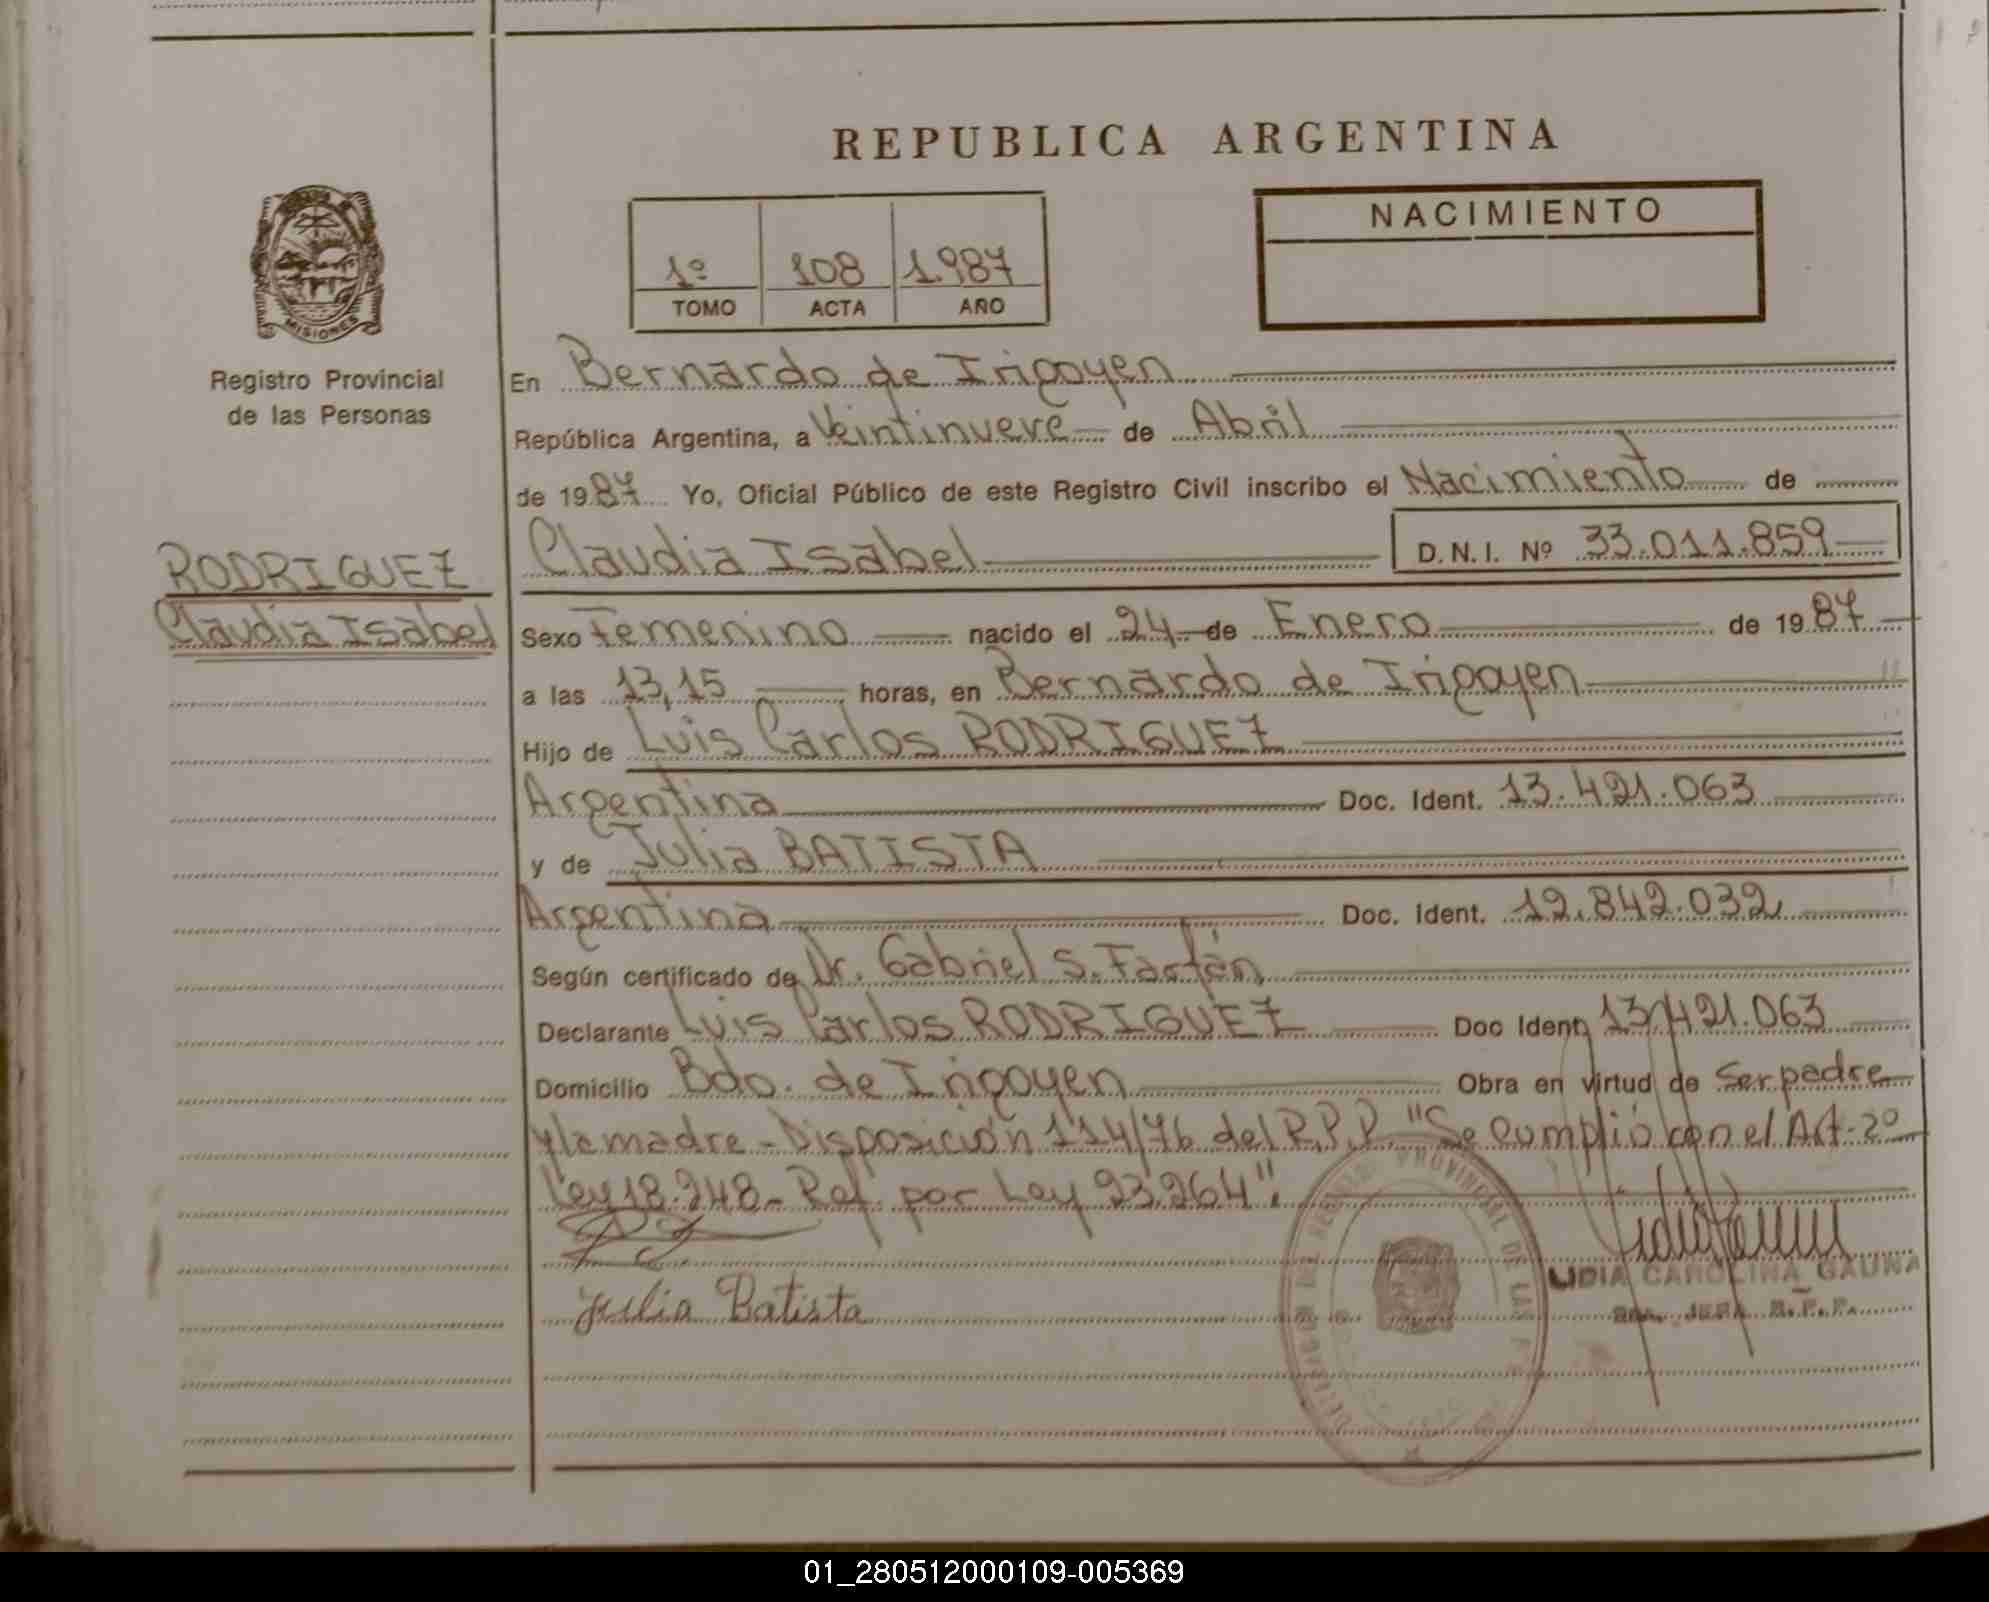 REPUBLICA ARGENTINA
NACIMIENTO
1º 108 1.987
TOMO ACTA AÑO
MISIONES
Registro Provincial
de las Personas
RODRIGUEZ
Claudia Isabel
En Bernardo de Irigoyen
República Argentina, a Veintinueve de Abril
de 1987 Yo, Oficial Público de este Registro Civil inscribo el Nacimiento de
Claudia Isabel D.N.I. Nº 33.011.859
Sexo Femenino nacido el 24 de Enero de 1987
a las 13,15 horas, en Bernardo de Irigoyen
Hijo de Luis Carlos RODRIGUEZ
Argentina Doc. Ident. 13.421.063
y de Julia BATISTA
Argentina Doc. Ident. 12.842.032
Según certificado de Dr. Gabriel S. Farfán
Declarante Luis Carlos RODRIGUEZ Doc Ident. 13.421.063
Domicilio Bdo. de Irigoyen Obra en virtud de Ser padre
y la madre - Disposición 114/76 del R.P.P. "Se cumplió con el Art. 2º
Ley 18.248 - Ref. por Ley 23.264".
Julia Batista
LIDIA CAROLINA GAUNA
JEFA R.P.P.
REGISTRO PROVINCIAL DE LAS
01_280512000109-005369